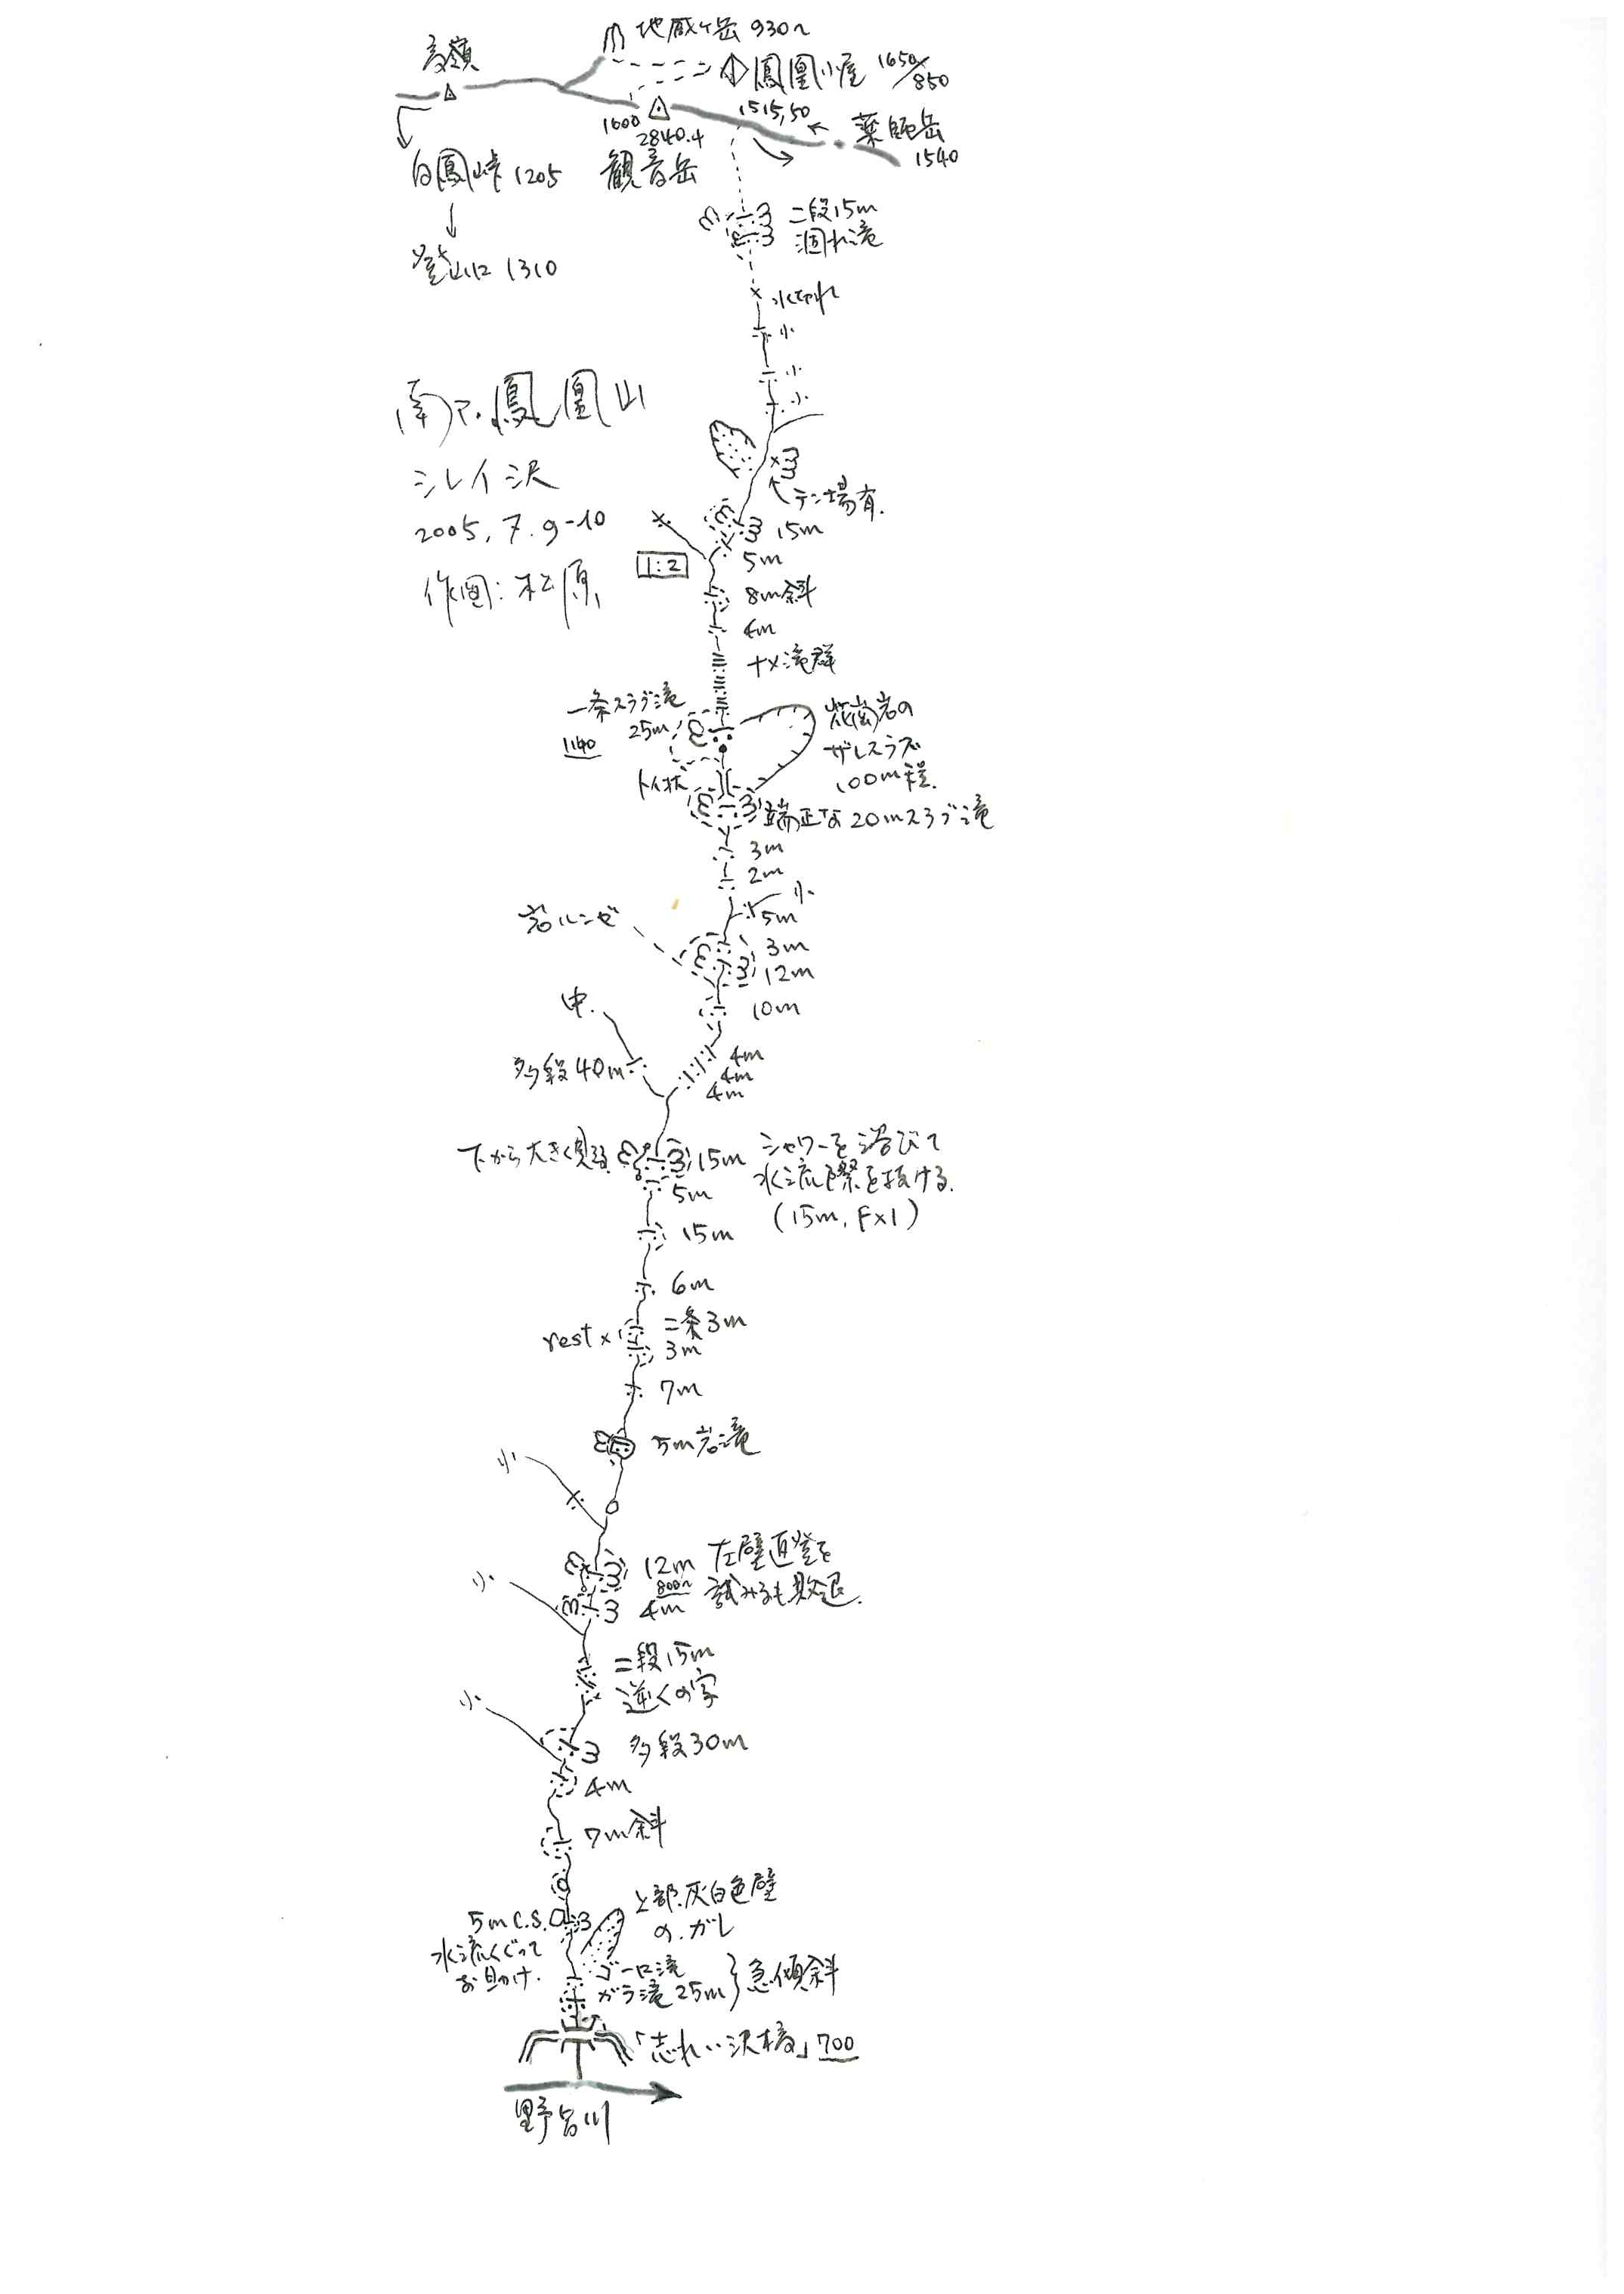 地蔵ヶ岳 930~
高嶺
鳳凰小屋 1650/850
1600
2840.4
観音岳
1515,50
薬師岳
1540
白鳳峠 1205
登山口 1310
二段15m
涸れ滝
水切れ
小
小
小
南ア.鳳凰山
シレイ沢
2005.7.9-10
作図:松原
テン場有.
15m
1:2
5m
8m斜
4m
ナメ滝群
一条スラブ滝
25m
1140
花崗岩の
ザレスラブ
100m程.
トイ状
端正な20mスラブ滝
3m
2m
小
5m
岩ルンゼ
3m
12m
10m
中.
多段40m
4m
4m
4m
下から大きく見える
15m
シャワーを浴びて
水流際を抜ける.
(15m, F×1)
5m
15m
6m
二条3m
rest ×
3m
7m
5m岩滝
小
12m
左壁直登を
800~
試みるも敗退.
小
4m
二段15m
逆くの字
小
多段30m
4m
7m斜
上部.灰白色壁
の.ガレ
5m C.S.
水流くぐって
お助け.
ゴーロ滝
ガラ滝 25m
急傾斜
「志れい沢橋」700
野呂川